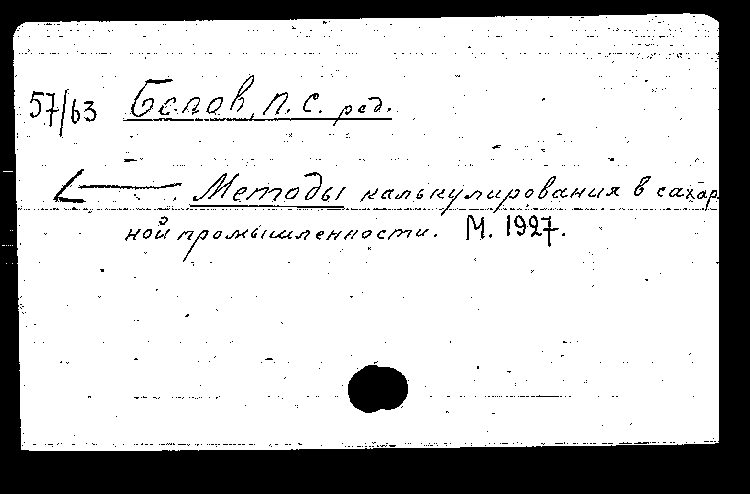 57/63 Белов, П. С. ред.
Методы калькулирования в сахар
ной промышленности. М. 1927.